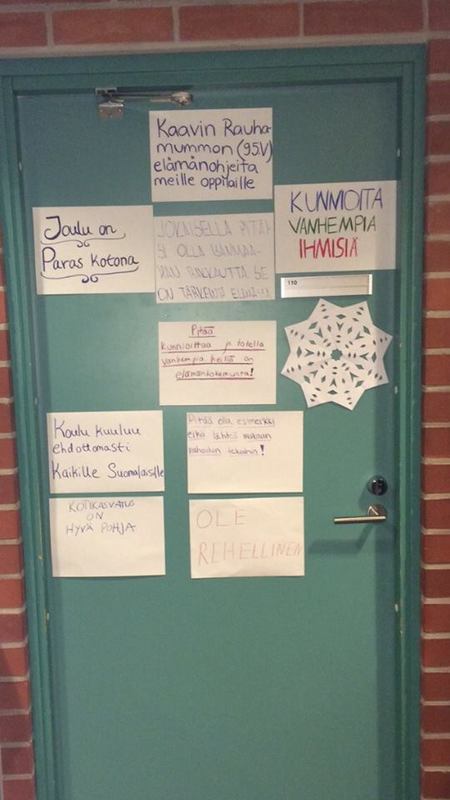 Kaavin Rauha-
mummon (95V)
elämänohjeita
meille oppilaille
Joulu on
Paras kotona
JOKAISELLA PITÄI-
SI OLLA ISÄNMAA-
RAKKAUTTA SE
ON TÄRKEINTÄ
KUNNIOITA
VANHEMPIA
IHMISIÄ
110
Pitää
kunnioittaa ja totella
vanhempia heillä on
elämänkokemusta!
Koulu kuuluu
ehdottomasti
Kaikille Suomalaisille
Pitää olla esimerkki
eikä lähteä mukaan
pahoihin tekoihin!
KOTIKASVATUS
ON
HYVÄ POHJA
OLE
REHELLINEN